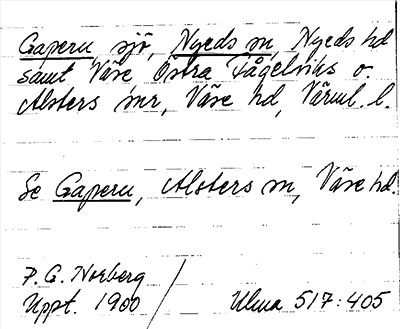 Gapern, sjö, Nyeds sn, Nyeds hd
samt Väse, Östra Fågelviks o.
Alsters snr, Väse hd, Värml. l.
Se Gapern, Alsters sn, Väse hd.
P. G. Norberg
Uppt. 1900
Ulma 517:405